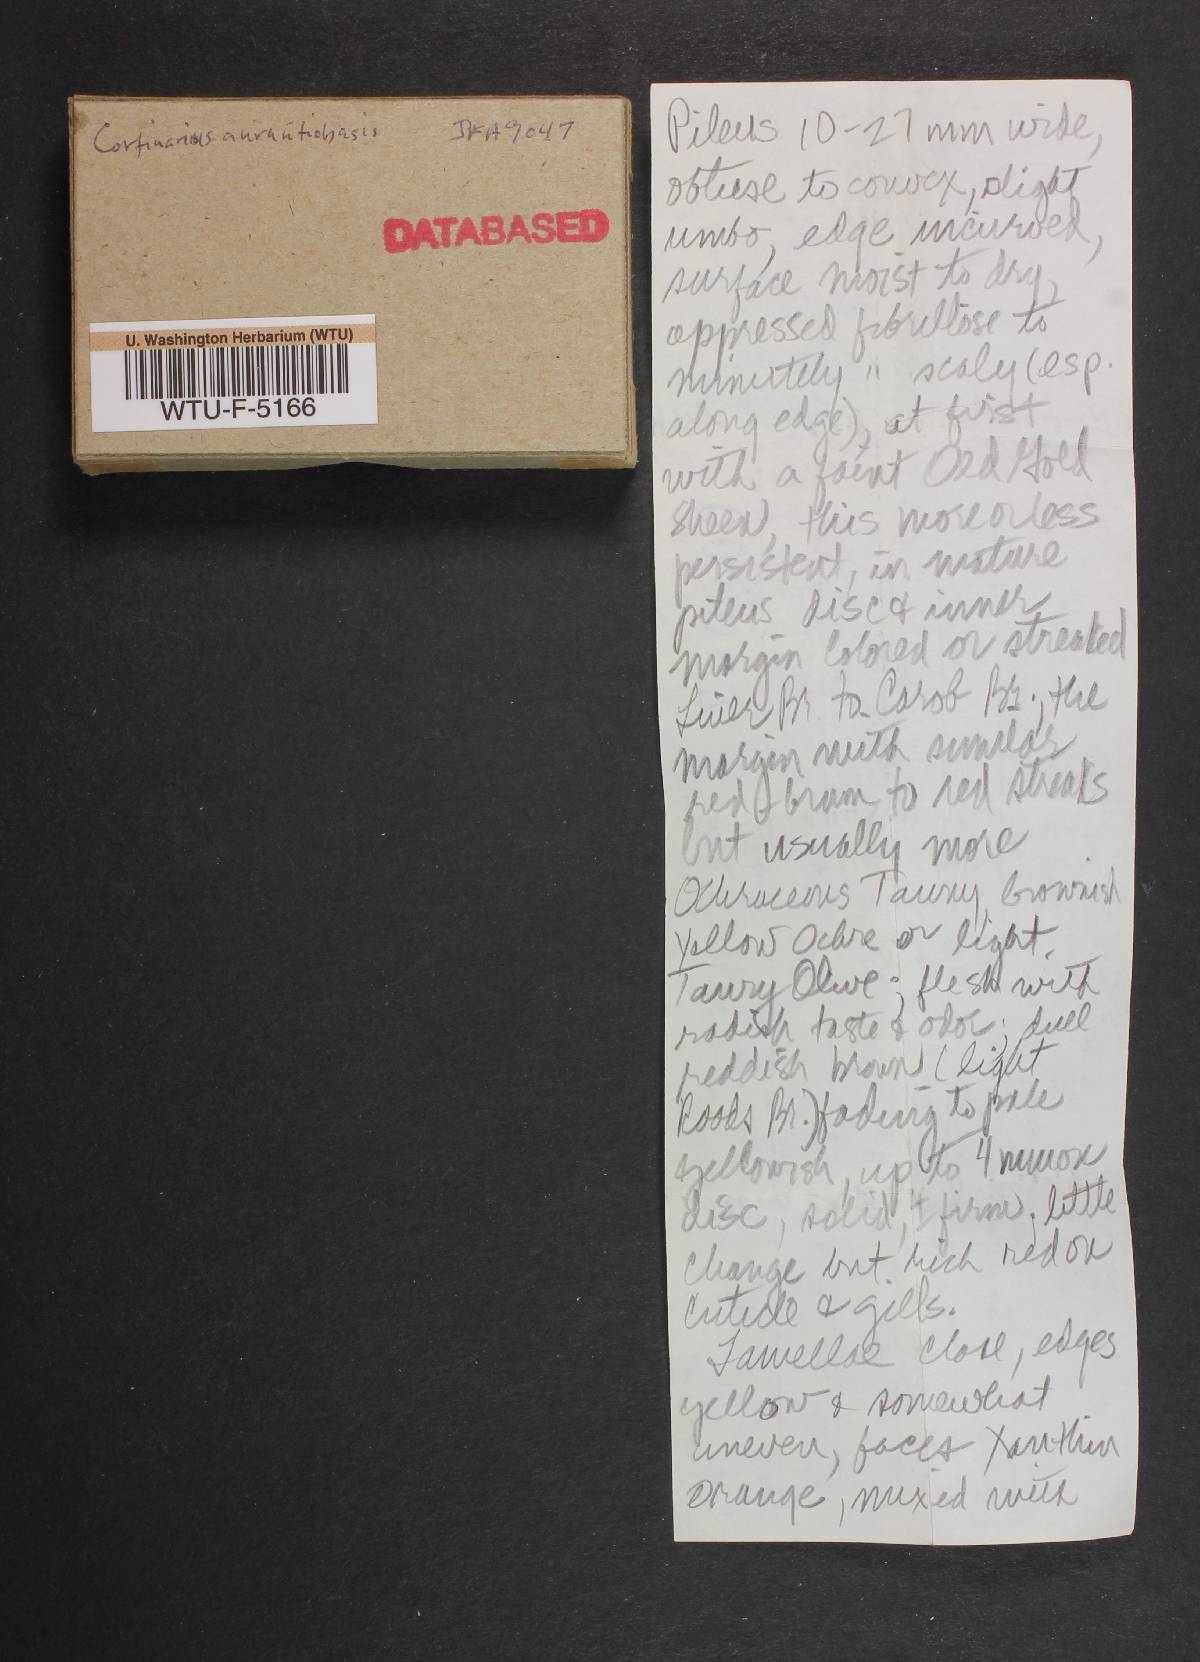 Cortinarius aurantiobasis JFA9047
DATABASED
U. Washington Herbarium (WTU)
WTU-F-5166
Pileus 10-27 mm wide,
obtuse to convex, slight
umbo, edge incurved,
surface moist to dry,
appressed fibrillose to
minutely " scaly (esp.
along edge), at first
with a faint Old Gold
sheen, this more or less
persistent, in mature
pileus disc & inner
margin colored or streaked
Liver Br. to Carob Br.; the
margin with similar
red brown to red streaks
but usually more
Ochraceous Tawny, brownish
Yellow Ochre or light
Tawny Olive; flesh with
radish taste & odor; dull
reddish brown (light
Roods Br.) fading to pale
yellowish, up to 4 mm on
disc, solid, ± firm; little
change but rich red on
cuticle & gills.
Lamellae close, edges
yellow & somewhat
uneven, faces Xanthin
orange, mixed with